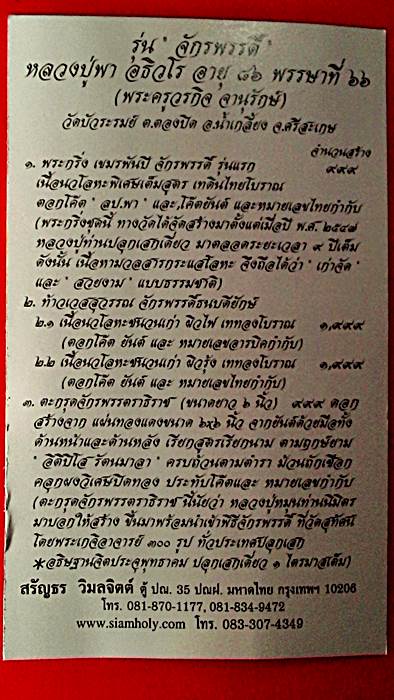 รุ่น " จักรพรรดิ์ "
หลวงปู่พา อธิวโร อายุ ๘๖ พรรษาที่ ๖๖
(พระครูวรกิจ จานุรักษ์)
วัดบัวระรมย์ ต.ตองปิด อ.น้ำเกลี้ยง จ.ศรีสะเกษ
จำนวนสร้าง
๑. พระกริ่ง เขมรพันปี จักรพรรดิ์ รุ่นแรก ๙๙๙
เนื้อนวโลหะพิเศษเต็มสูตร เทดินไทยโบราณ
ตอกโค๊ต " ลป.พา " และ,โค๊ตยันต์ และหมายเลขไทยกำกับ
(พระกริ่งชุดนี้ ทางวัดได้จัดสร้างมาตั้งแต่เมื่อปี พ.ศ. ๒๕๔๗
หลวงปู่ท่านปลุกเสกเดี่ยว มาตลอดระยะเวลา ๙ ปีเต็ม
ดังนั้น เนื้อหามวลสารกระแสโลหะ จึงถือได้ว่า " เก่าจัด "
และ " สวยงาม " แบบธรรมชาติ)
๒. ท้าวเวสสุวรรณ จักรพรรดิ์ธนบดียักษ์
๒.๑ เนื้อนวโลหะชนวนเก่า ผิวไฟ เททองโบราณ ๑,๙๙๙
(ตอกโค๊ต ยันต์ และ หมายเลขอารบิคกำกับ)
๒.๒ เนื้อนวโลหะชนวนเก่า ผิวรุ้ง เททองโบราณ ๑,๙๙๙
(ตอกโค๊ต ยันต์ และ หมายเลขไทยกำกับ)
๓. ตะกรุดจักรพรรดราธิราช (ขนาดยาว ๖ นิ้ว) ๙๙๙ ดอก
สร้างจาก แผ่นทองแดงขนาด ๖x๖ นิ้ว จารยันต์ด้วยมือทั้ง
ด้านหน้าและด้านหลัง เรียกสูตรเรียกนาม ตามฤกษ์ยาม
" อิติปิโส รัตนมาลา " ครบถ้วนตามตำรา ม้วนถักเชือก
คลุกผงวิเศษปิดทอง ประทับโค๊ตและ หมายเลขกำกับ
(ตะกรุดจักรพรรดราธิราช นี้นัยว่า หลวงปู่หมุนท่านนิมิตร
มาบอกให้สร้าง ขึ้นมาพร้อมนำเข้าพิธีจักรพรรดิ์ ที่วัดสุทัศน์
โดยพระเกจิอาจารย์ ๓๐๐ รูป ทั่วประเทศปลุกเสก
*อธิษฐานจิตประจุพุทธาคม ปลุกเสกเดี่ยว ๑ ไตรมาสเต็ม)
สรัญธร วิมลจิตต์ ตู้ ปณ. 35 ปณฝ. มหาดไทย กรุงเทพฯ 10206
โทร. 081-870-1177, 081-834-9472
www.siamholy.com โทร. 083-307-4349